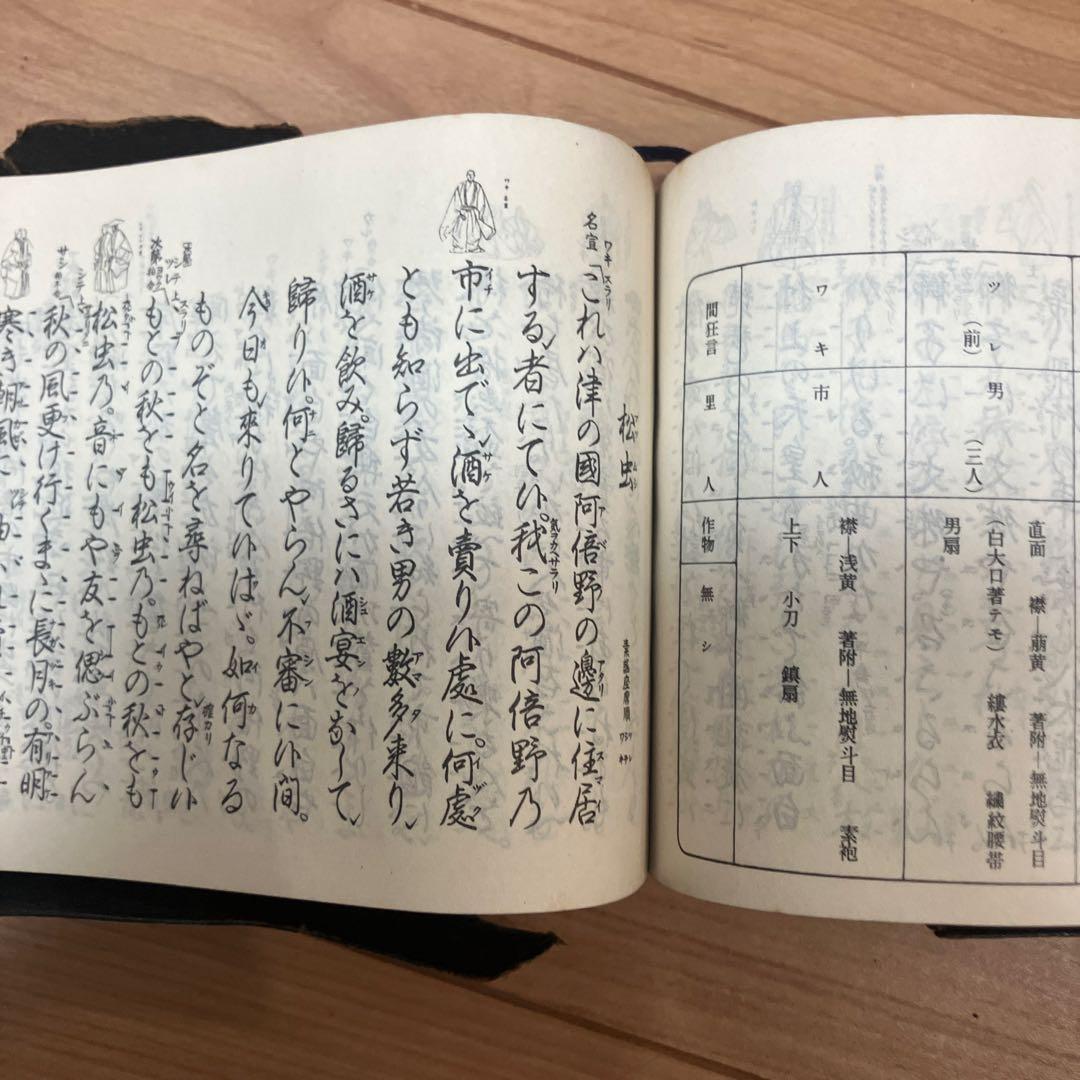 ツレ(前) 男(三人)
直面 襟―萠黄 著附―無地熨斗目
(白大口著テモ) 縷水衣 繍紋腰帯
男扇
ワキ 市人
襟 浅黄 著附―無地熨斗目 素袍
上下 小刀 鎮扇
間狂言 里人 作物 無シ
松虫
素謡座席順
名宣 ワキ スラリ
「これハ津の國阿倍野の邊に住居
する者にて候。我この阿倍野乃
市に出で、酒を賣り候處に。何處
とも知らず若き男の數多来り
酒を飲み。歸るさにハ酒宴をなして
歸り候。何とやらん不審に候間。
今日も来りて候はゞ。如何なる
ものぞと名を尋ねばやと存じ候
もとの秋をも松虫乃。もとの秋をも
松虫乃。音にもや友を偲ぶらん
秋の風更け行くまゝに長月の。有明
寒き朝風に